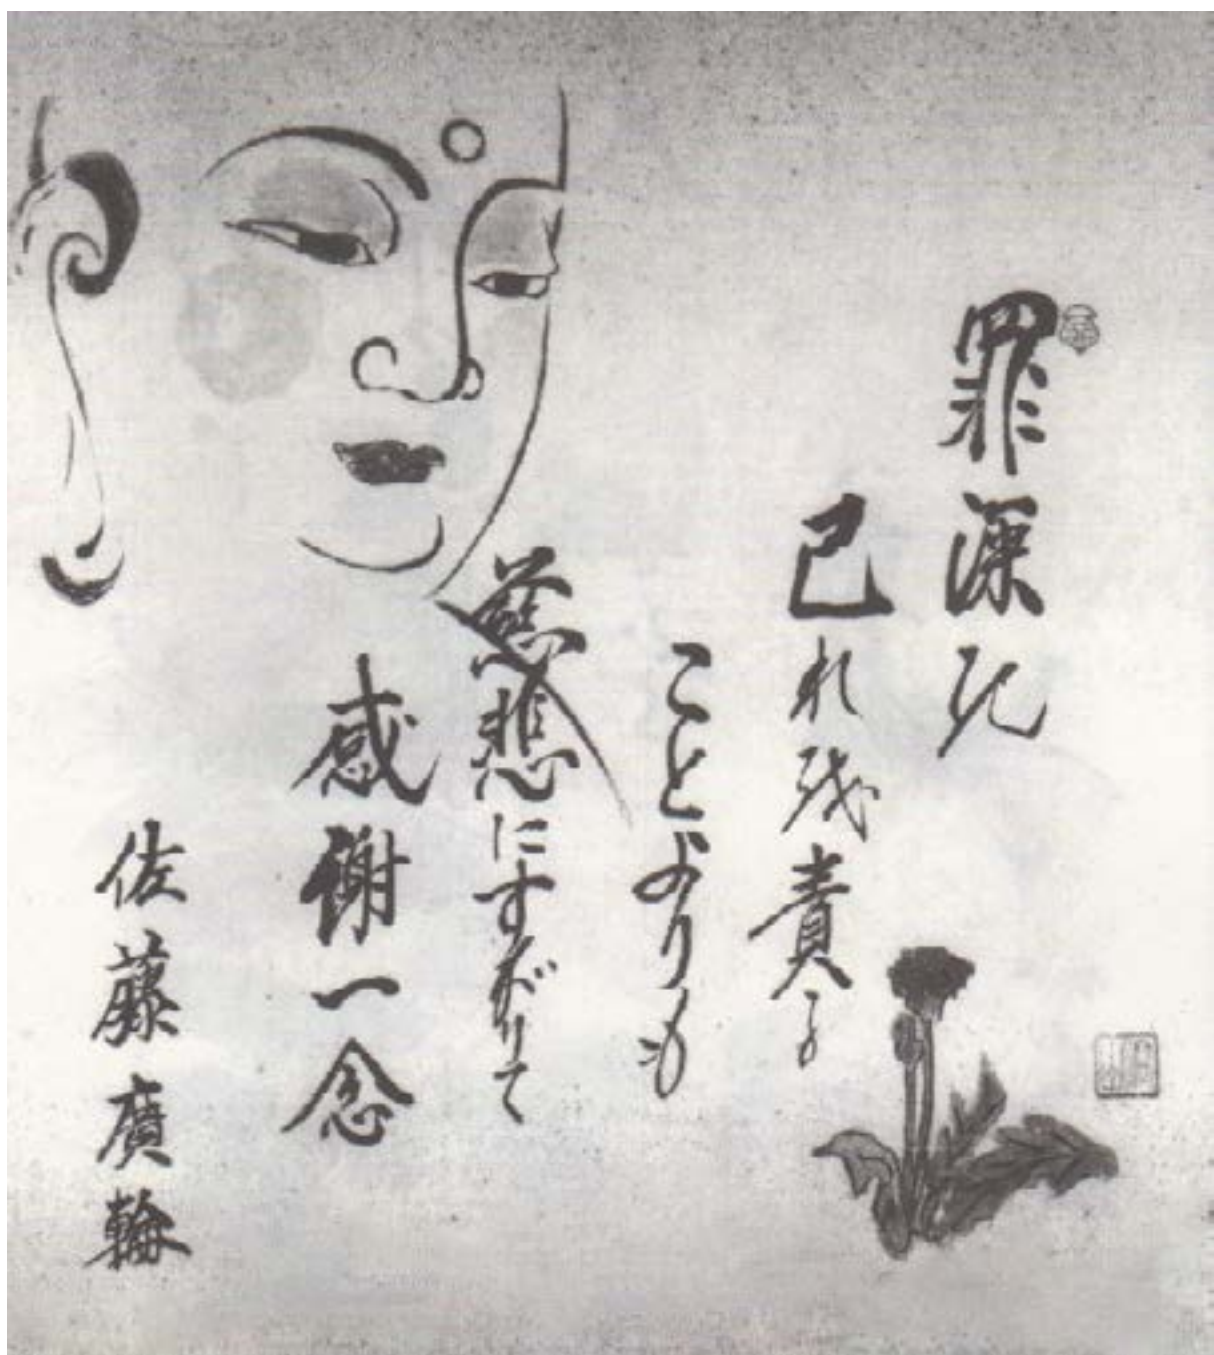 罪深き
己れを責る
ことよりも
慈悲にすがりて
感謝一念
佐藤廣輪